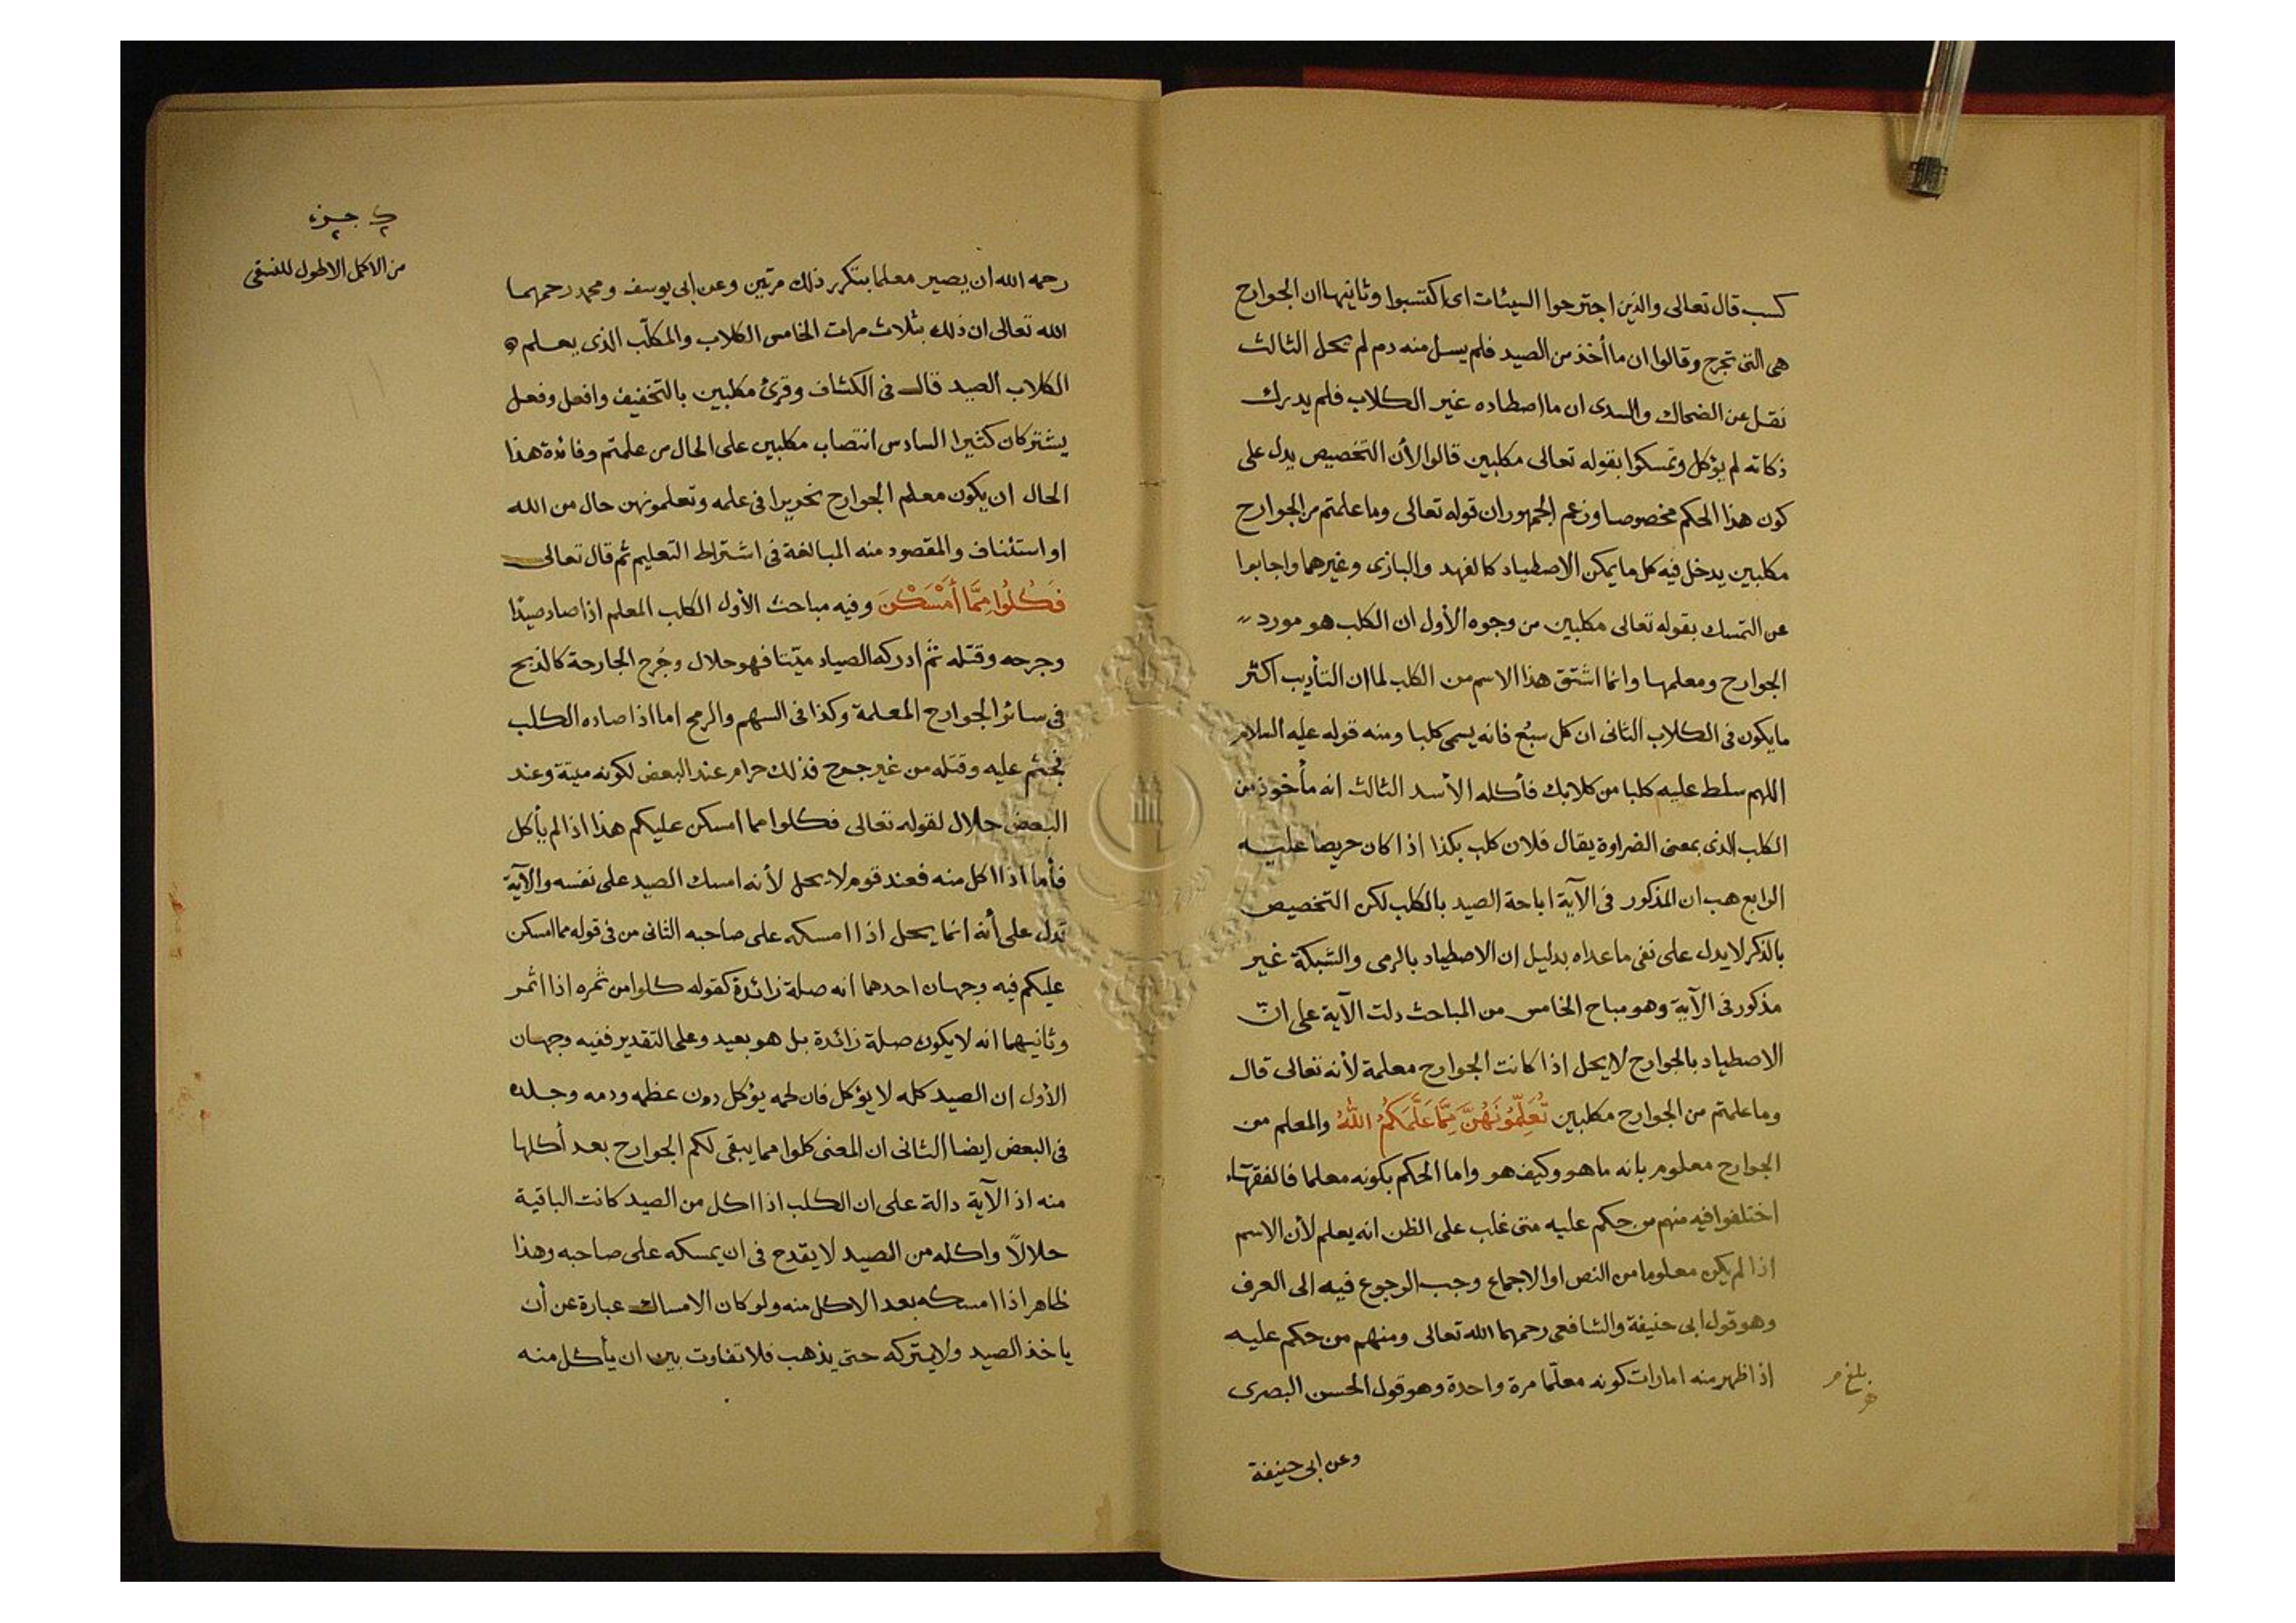 كسب قال تعالى والذين اجترحوا السيئات اى اكتسبوا وثانيها ان الجوارح
هى التى تجرح وقالوا ان ما أخذ من الصيد فلم يسل منه دم لم يحل الثالث
نقل عن الضحاك والسدى ان ما اصطاده غير الكلاب فلم يدرك
ذكاته لم يؤكل وتمسكوا بقوله تعالى مكلبين قالوا لأن التخصيص يدل على
كون هذا الحكم مخصوصا وزعم الجمهور ان قوله تعالى وما علمتم من الجوارح
مكلبين يدخل فيه كل ما يمكن الاصطياد كالفهد والبازى وغيرهما واجابوا
عن التمسك بقوله تعالى مكلبين من وجوه الأول ان الكلب هو مورد
الجوارح ومعلمها وانما اشتق هذا الاسم من الكلب لما ان التأديب اكثر
ما يكون فى الكلاب الثانى ان كل سبُع فانه يسمى كلبا ومنه قوله عليه السلام
اللهم سلط عليه كلبا من كلابك فأكله الأسد الثالث انه مأخوذ من
الكلب الذى بمعنى الضراوة يقال فلان كلب بكذا اذا كان حريصا عليه
الرابع هب ان المذكور فى الآية اباحة الصيد بالكلب لكن التخصيص
بالذكر لا يدل على نفى ما عداه بدليل ان الاصطياد بالرمى والشبكة غير
مذكور فى الآية وهو مباح الخامس من المباحث دلت الآية على انّ
الاصطياد بالجوارح لا يحل اذا كانت الجوارح معلمة لأنه تعالى قال
وما علمتم من الجوارح مكلبين تُعَلِّمُونَهُنَّ مِمَّا عَلَّمَكُمُ اللهُ والمعلم من
الجوارح معلوم بانه ما هو وكيف هو واما الحكم بكونه معلما فالفقهاء
اختلفوا فيه منهم من حكم عليه متى غلب على الظن انه يعلم لأن الاسم
اذا لم يكن معلوما من النص او الاجماع وجب الرجوع فيه الى العرف
وهو قول ابى حنيفة والشافعى رحمهما الله تعالى ومنهم من حكم عليه
اذا ظهر منه امارات كونه معلّما مرة واحدة وهو قول الحسن البصرى
وعن ابى حنيفة
جزء
من الاكمل الاطول للنسفى
رحمه الله ان يصير معلما بتكرر ذلك مرتين وعن ابى يوسف ومحمد رحمهما
الله تعالى ان ذلك بثلاث مرات الخامس الكلاب والمكلّب الذى يعلم
الكلاب الصيد قال فى الكشاف وقرئ مكلبين بالتخفيف وافعل وفعل
يشتركان كثيرا السادس انتصاب مكلبين على الحال من علمتم وفائدة هذا
الحال ان يكون معلم الجوارح نحريرا فى علمه وتعلمونهن حال من الله
او استئناف والمقصود منه المبالغة فى اشتراط التعليم ثم قال تعالى
فَكُلُوا مِمَّا أَمْسَكْنَ وفيه مباحث الأول الكلب المعلم اذا صاد صيدًا
وجرحه وقتله ثم ادركه الصياد ميّتا فهو حلال وجُرح الجارحة كالذبح
فى سائر الجوارح المعلمة وكذا فى السهم والرمح اما اذا صاده الكلب
فجثم عليه وقتله من غير جرح فذلك حرام عند البعض لكونه ميتة وعند
البعض حلال لقوله تعالى فكلوا مما امسكن عليكم هذا اذا لم يأكل
فأما اذا اكل منه فعند قوم لا يحل لأنه امسك الصيد على نفسه والآية
تدل على أنه انما يحل اذا امسكه على صاحبه الثانى من فى قوله مما امسكن
عليكم فيه وجهان احدهما انه صلة زائدة كقوله كلوا من ثمره اذا اثمر
وثانيهما انه لا يكون صلة زائدة بل هو بعيد وعلى التقدير ففيه وجهان
الأول ان الصيد كله لا يؤكل فان لحمه يؤكل دون عظمه ودمه وجلده
فى البعض ايضا الثانى ان المعنى كلوا مما يبقى لكم الجوارح بعد أكلها
منه اذ الآية دالة على ان الكلب اذا اكل من الصيد كانت الباقية
حلالًا واكله من الصيد لا يقدح فى ان يمسكه على صاحبه وهذا
ظاهر اذا امسكه بعد الاكل منه ولو كان الامساك عبارة عن أن
ياخذ الصيد ولا يتركه حتى يذهب فلا تفاوت بين ان يأكل منه